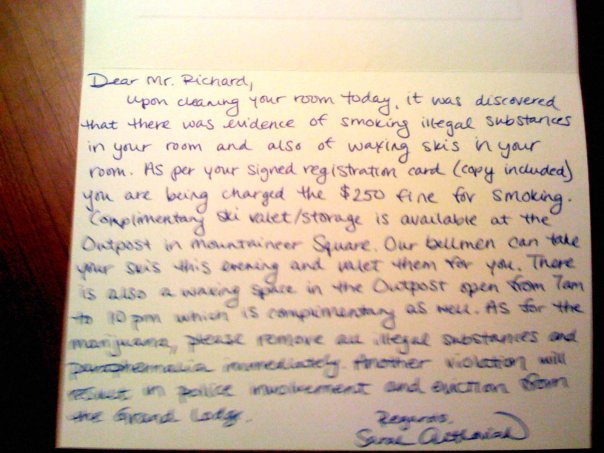 Dear Mr. Richard,
upon cleaning your room today, it was discovered
that there was evidence of smoking illegal substances
in your room and also of waxing skis in your
room. As per your signed registration card (copy included)
you are being charged the $250 fine for smoking.
Complimentary ski valet/storage is available at the
Outpost in Mountaineer Square. Our bellmen can take
your skis this evening and valet them for you. There
is also a waxing space in the Outpost open from 7am
to 10 pm which is complimentary as well. As for the
marijuana, please remove all illegal substances and
paraphernalia immediately. Another violation will
result in police involvement and eviction from
the Grand Lodge.
Regards,
Sarah